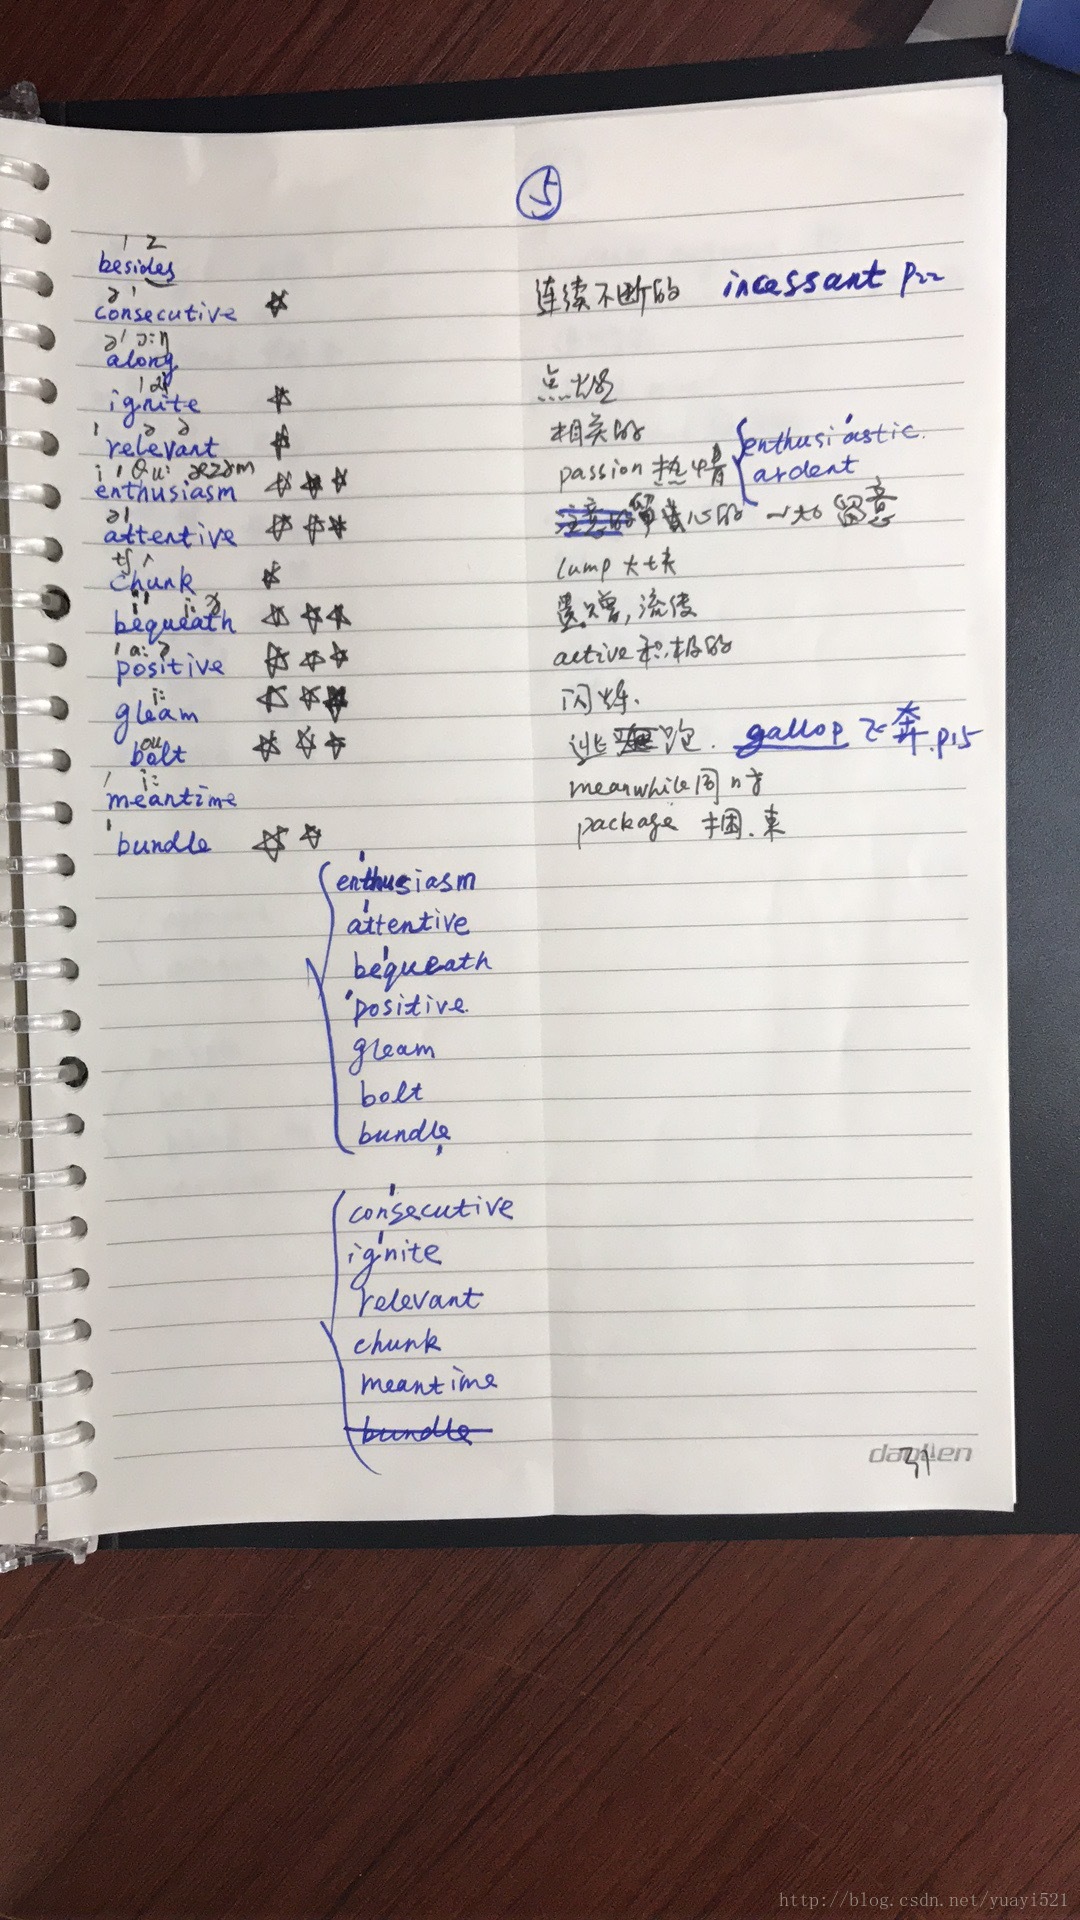 5
besides
consecutive ☆ 连续不断的 incessant P22
along
ignite ☆ 点燃
relevant ☆ 相关的
enthusiasm ☆☆☆ passion 热情 { enthusiastic.
ardent
attentive ☆☆☆ 留心的 留意
chunk ☆ lump 大块
bequeath ☆☆☆ 遗赠,流传
positive ☆☆☆ active 积极的
gleam ☆☆☆ 闪烁.
bolt ☆☆☆ 逃跑. gallop 飞奔.p15
meantime meanwhile 同时
bundle ☆☆ package 捆.束
enthusiasm
attentive
bequeath
positive.
gleam
bolt
bundle
consecutive
ignite
relevant
chunk
meantime
bundle
31
http://blog.csdn.net/yuayi521